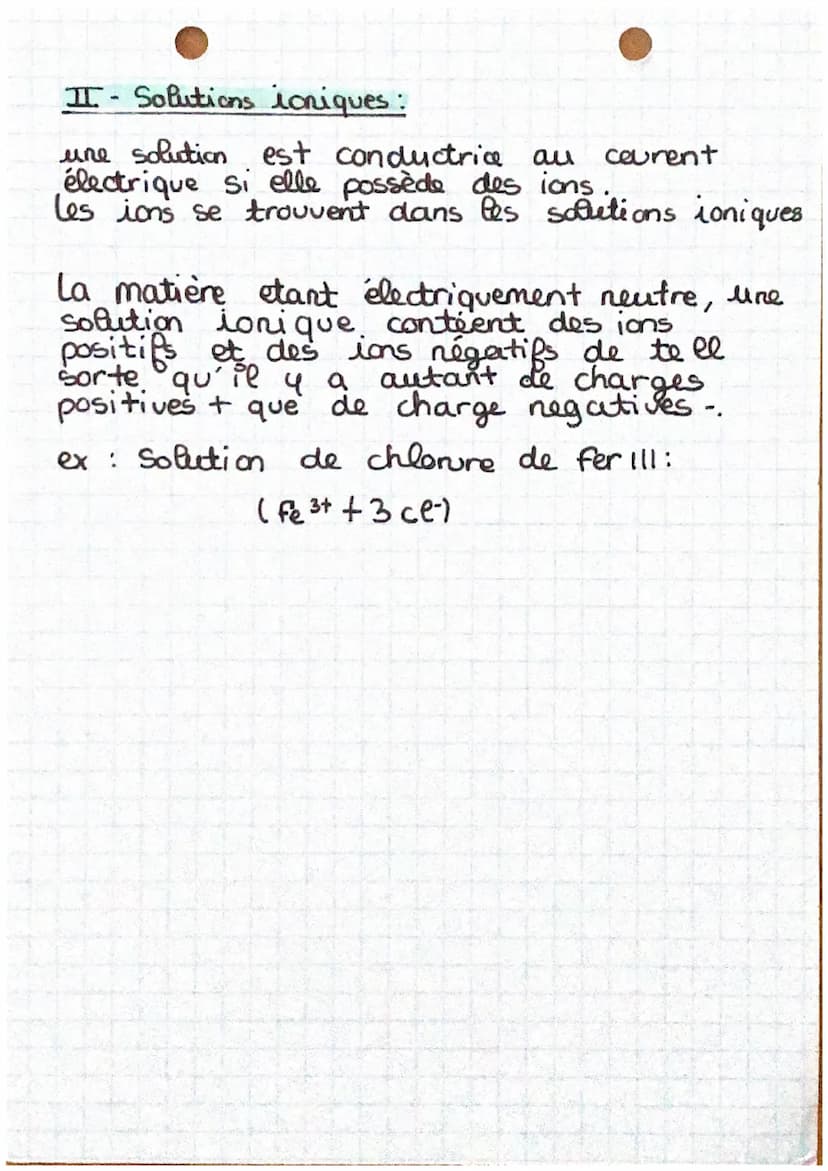 II - Solutions ioniques :
une solution est conductrice au courent
électrique si elle possède des ions.
Les ions se trouvent dans les solutions ioniques
La matière etant électriquement neutre, une
solution ionique contient des ions
positifs et des ions négatifs de tell
sorte qu'il y a autant de charges
positives + que de charge negatives -.
ex : Solution de chlorure de fer III :
(Fe³⁺ + 3 Cl⁻)